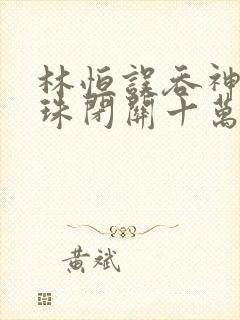 林恒誤吞神
珠閉關十萬
黃斌